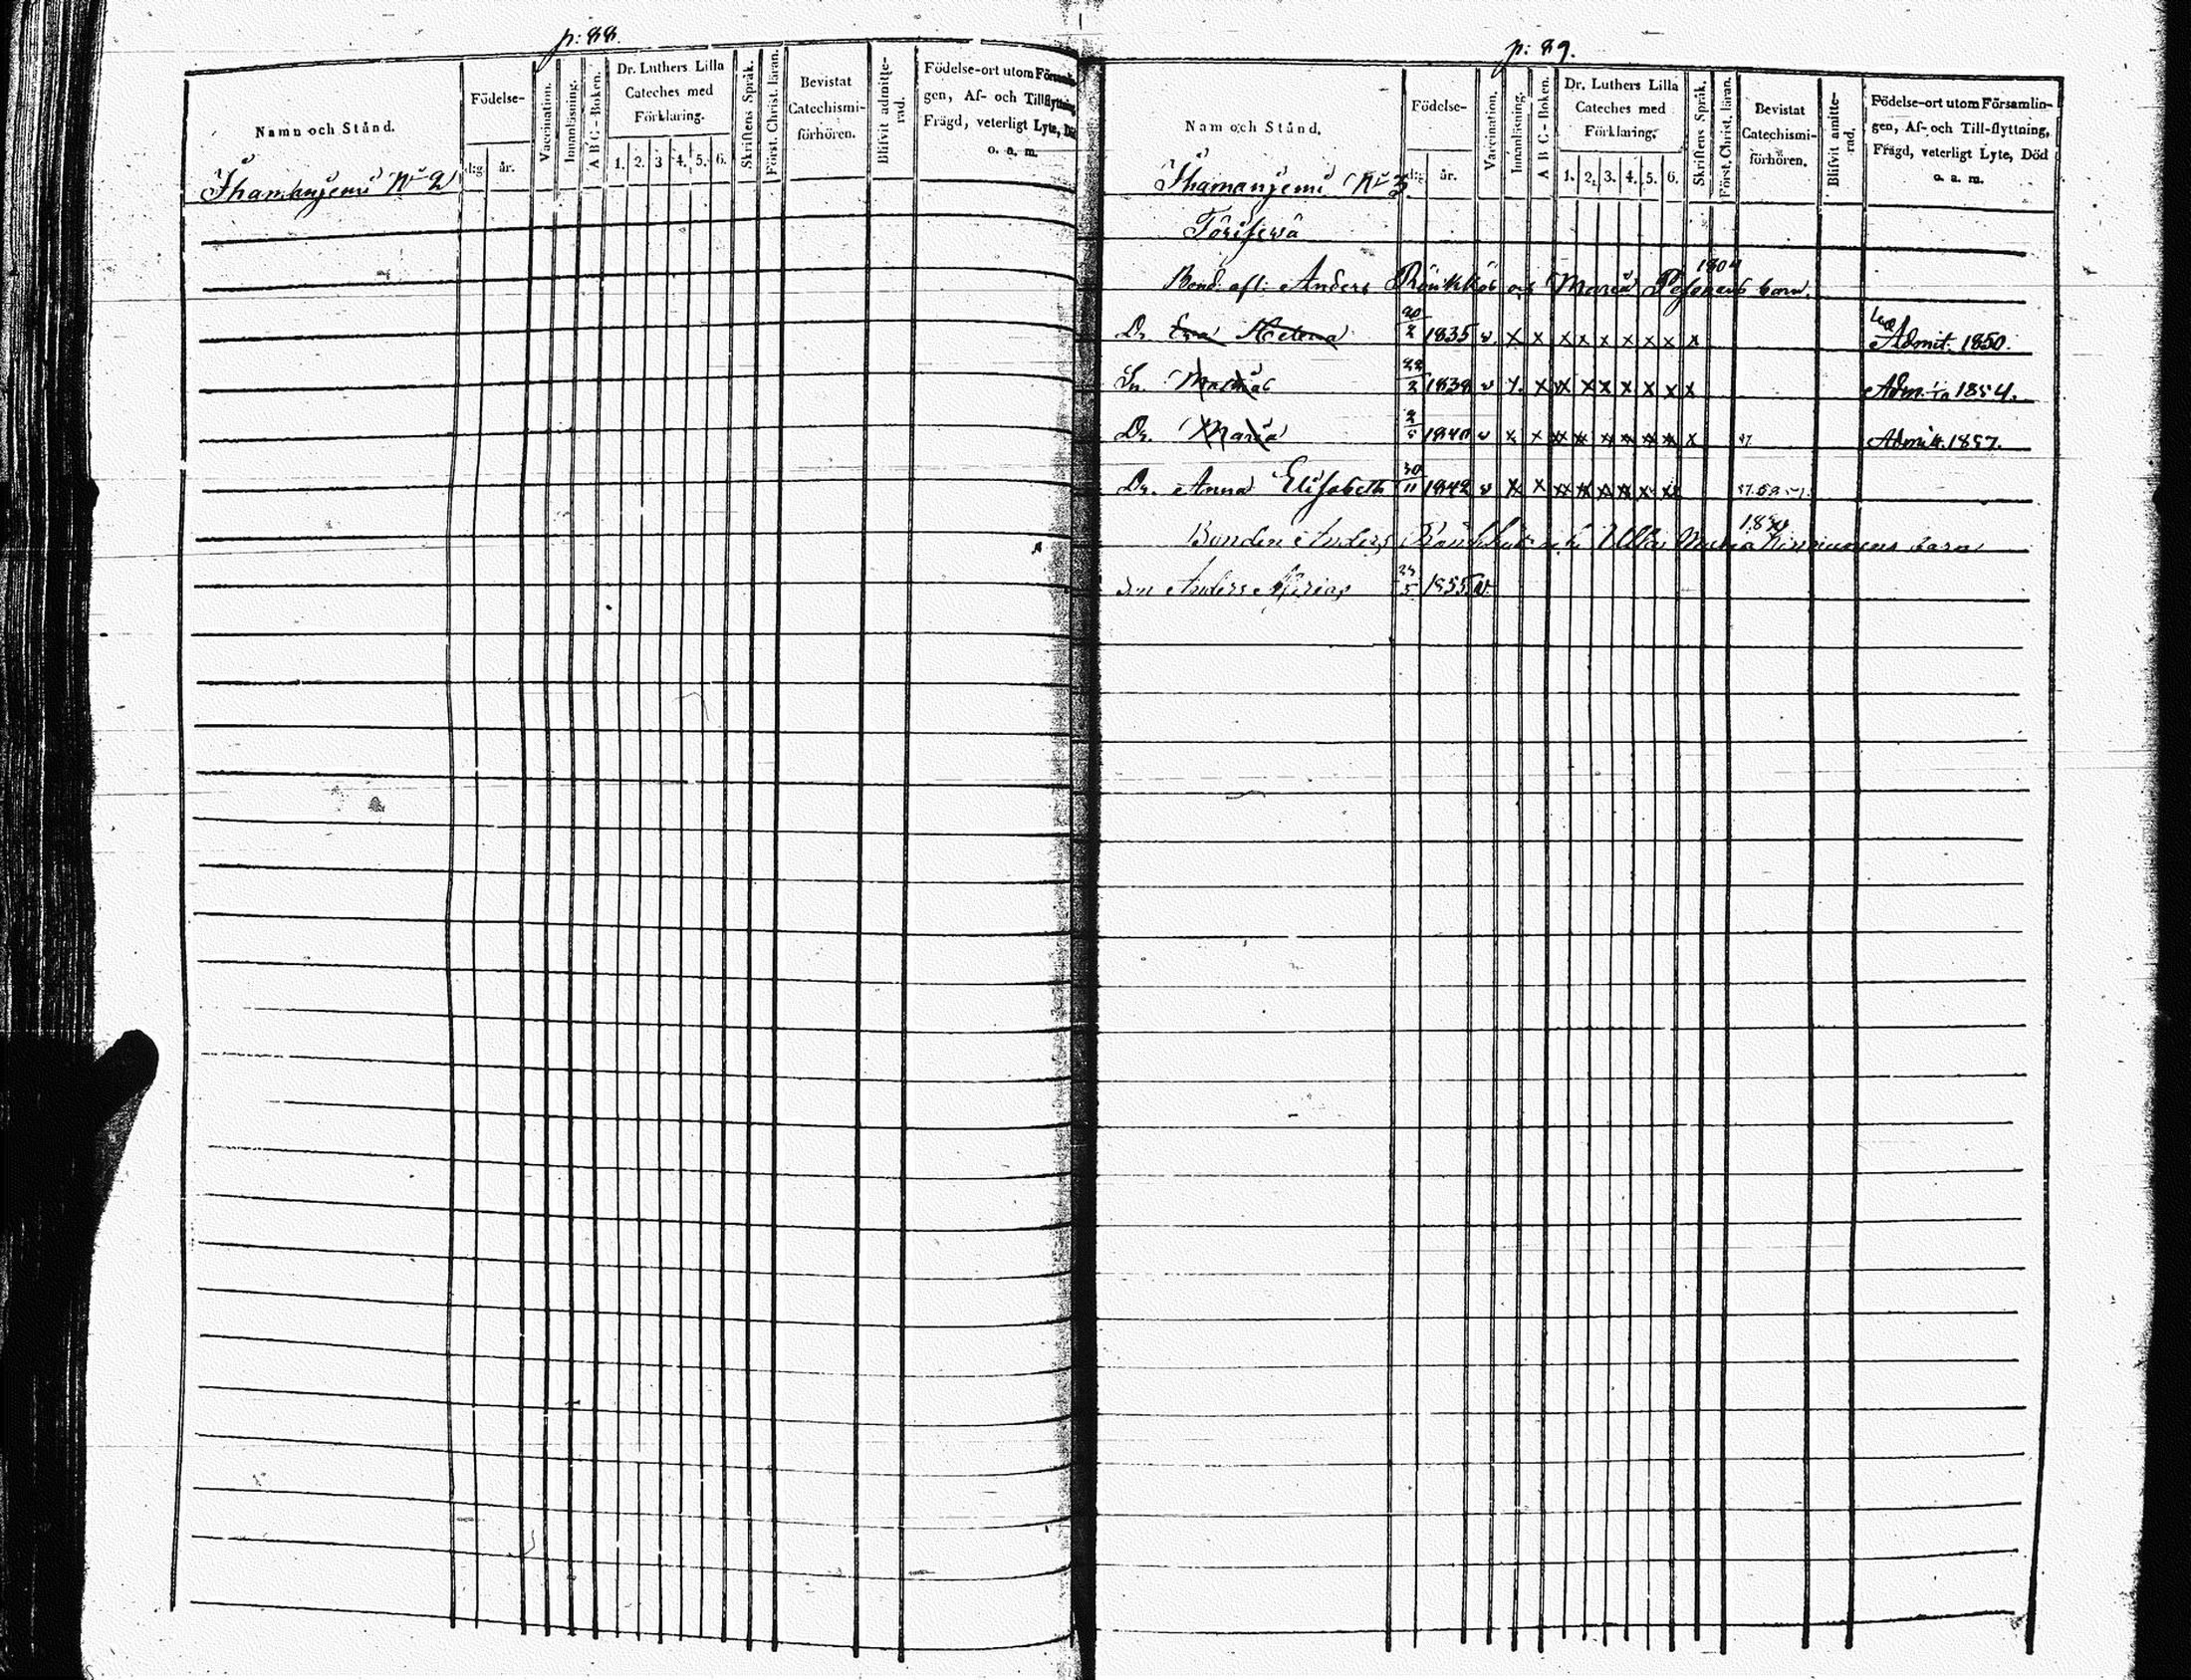 p: 88.
Namn och Stånd.
Födelse-
dig
år.
Vaccination.
Innanläsning.
A B C - Boken.
Dr. Luthers Lilla
Cateches med
Förklaring.
1. 2. 3 4. 5. 6.
Skriftens Språk.
Först. Christ. läran.
Bevistat
Catechismi-
förhören.
Blifvit admitte-
rad.
Födelse-ort utom Församlin-
gen, Af- och Tillflyttning,
Frägd, veterligt Lyte, Död
o. a. m.
Ihamaniemi No 2
p: 89.
Nam och Stånd.
Födelse-
dig
år.
Vaccination.
Innanläsning.
A B C - Boken.
Dr. Luthers Lilla
Cateches med
Förklaring.
1. 2. 3. 4. 5. 6.
Skriftens Språk.
Först. Christ. läran.
Bevistat
Catechismi-
förhören.
Blifvit amitte-
rad.
Födelse-ort utom Församlin-
gen, Af- och Till-flyttning,
Frägd, veterligt Lyte, Död
o. a. m.
Ihamaniemi No 3
Bond. afl. Anders Rönkkös och Maria Pesonens barn.
Dr. Eva Helena 20/2 1835 v. x x x x x x x x x Admit. 1850.
Sn. Mathias 22/2 1838 v x x x x x x x x x Adm. 1854.
Dr. Maria 2/5 1840 v x x x x x x x x x Admitt. 1857.
Dr. Anna Elisabeth 30/11 1842 v x x x x x x x x
Bonden Anders Rönkkös och Ulla Maria barn
Son Anders 5 1855 v.